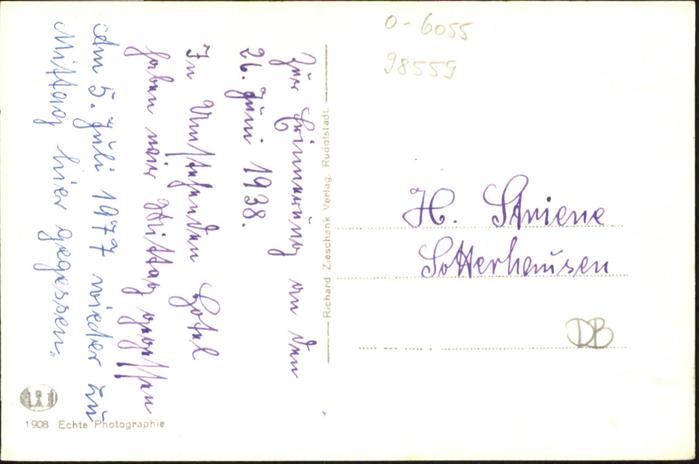 O-6055
98559
Zur Erinnerung an den
26. Juni 1938.
In Umstehenden Hotel
haben wir Mittag gegessen
Am 5. Juli 1977 wieder zu
Mittag hier gegessen.
Richard Zieschank Verlag, Rudolstadt.
H. Striene
Sotterhausen
DB
1908 Echte Photographie